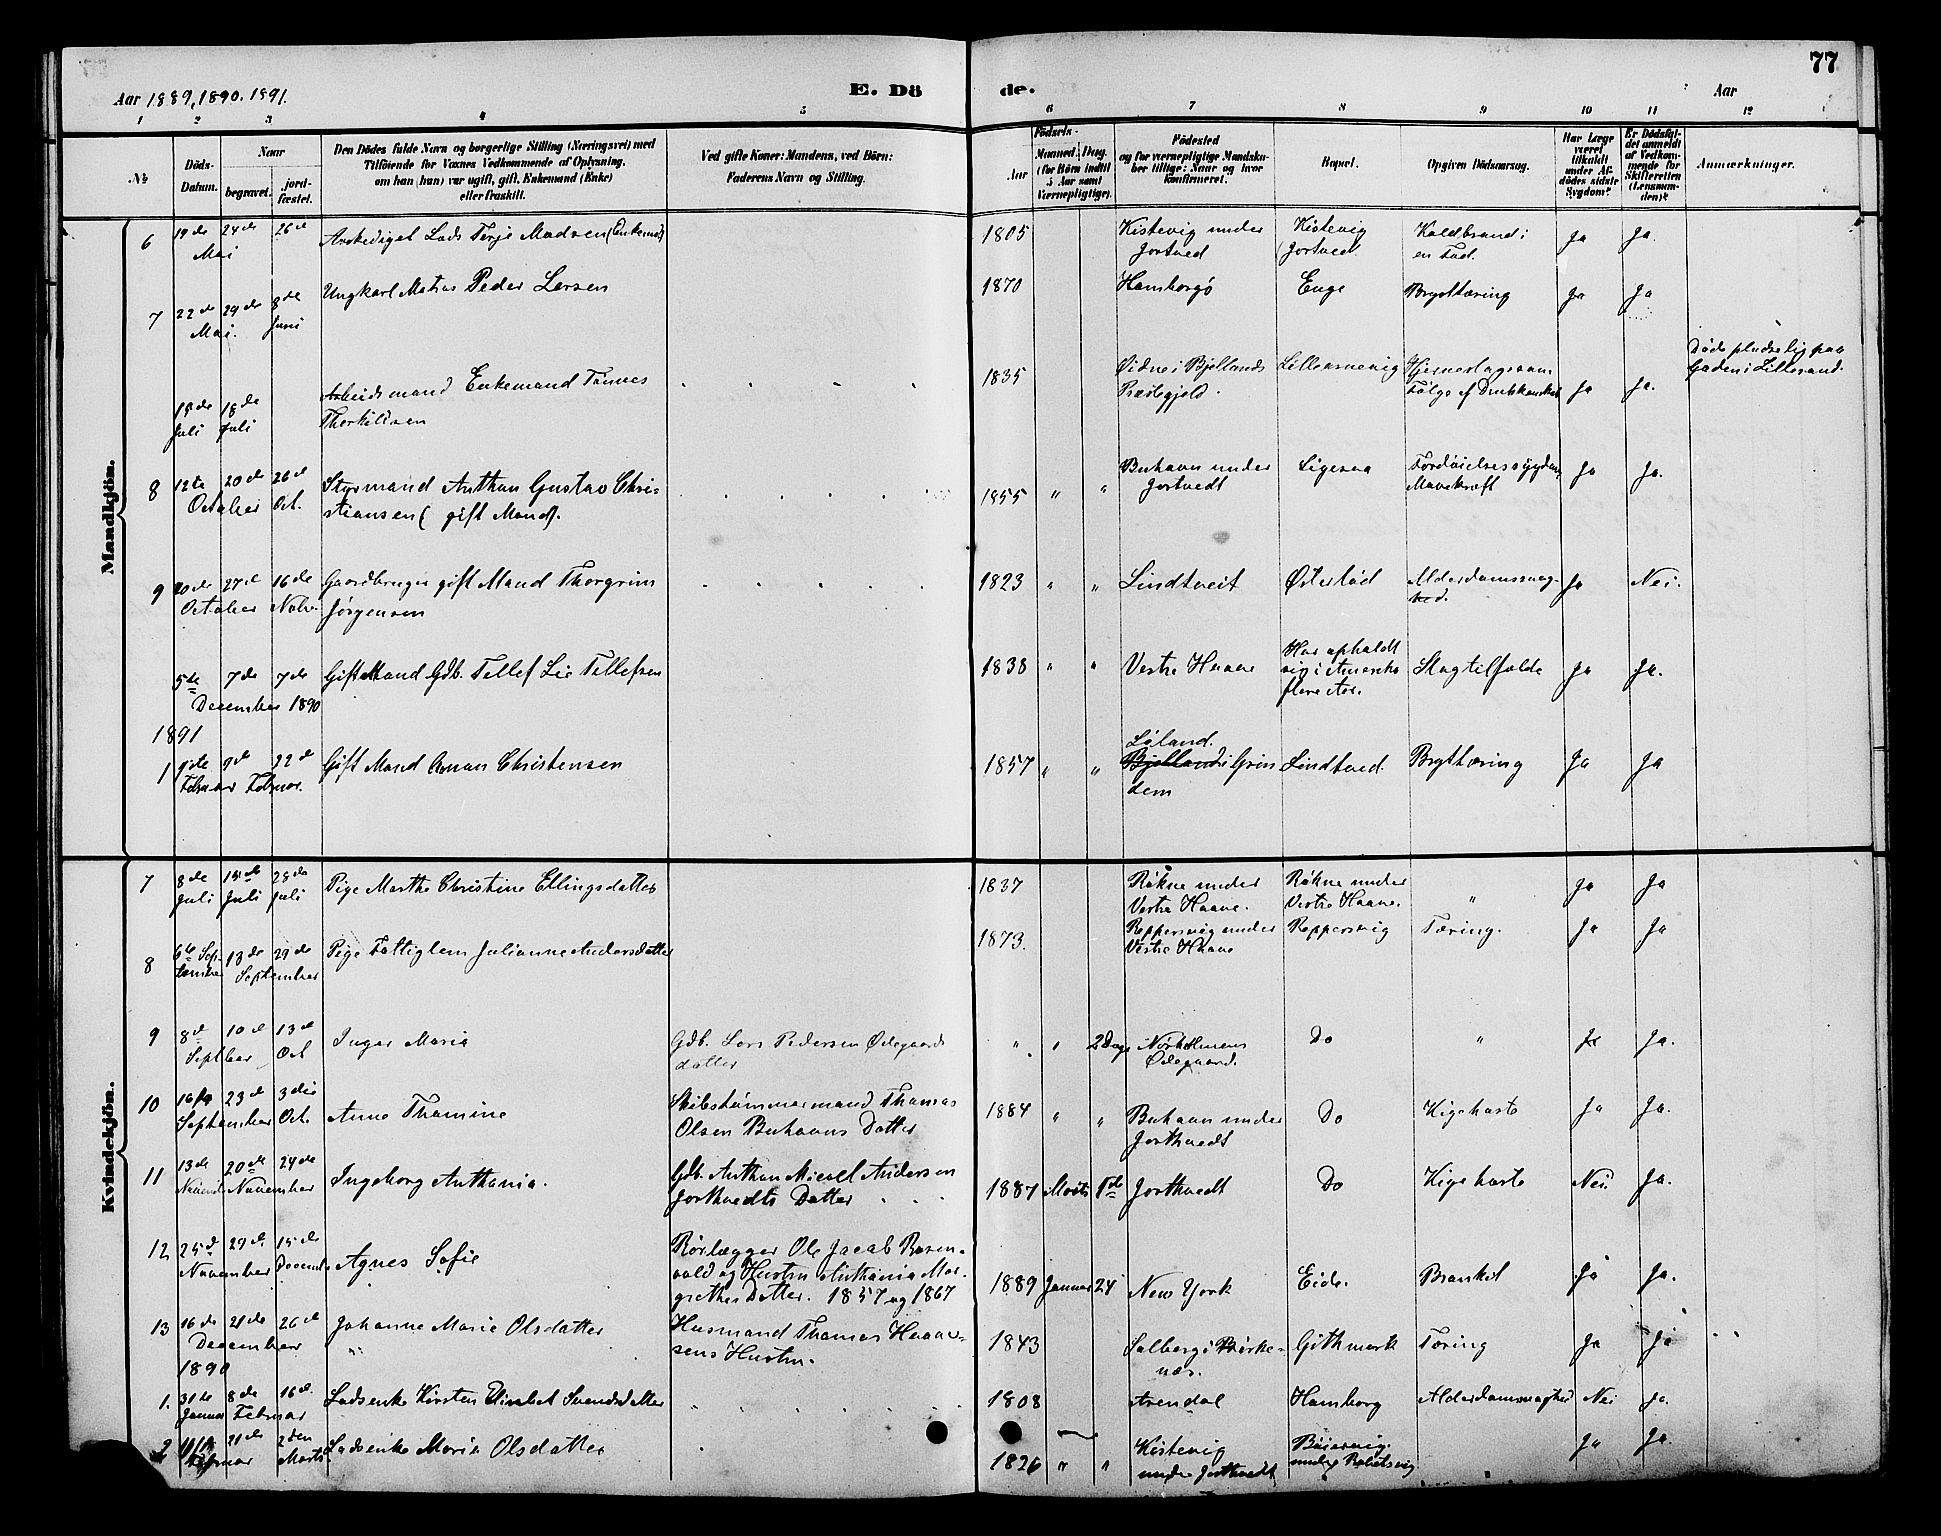 77
Aar 1889, 1890. 1891.
E. Dö
de.
Aar
1 2 3 4 5 6 7 8 9 10 11 12
№
Döds-Datum.
Naar
begravet.
jord-fæstet.
Den Dödes fulde Navn og borgerlige Stilling (Næringsvei) med
Tilföiende for Voxnes Vedkommende af Oplysning,
om han (hun) var ugift, gift, Enkemand (Enke)
eller fraskilt.
Ved gifte Koner: Mandens, ved Börn:
Faderens Navn og Stilling.
Födsels-
Aar
Maaned. Dag.
(for Börn indtil
5 Aar samt
Værnepligtige).
Födested
og for værnepligtige Mandska-
ber tillige: Naar og hvor
konfirmeret.
Bopæl.
Opgiven Dödsaarsag.
Har Læge
været
tilkaldt
under Af-
dödes sidste
Sygdom?
Er Dödsfal-
det anmeldt
af Vedkom-
mende for
Skifteretten
(Lensman-
den)?
Anmærkninger.
Mandkjön.
6 19de Mai 24de 26de Terje Madsen (Enkemd) 1805 Kistevig under Jortved Kistevig Jortved. Koldbrand i en Fod. Ja Ja.
7 22de Mai. 29de 8de Juni Ungkarl Matias Peder Larsen 1870 Hamborgö Enge Brysttæring Ja Ja
Juli 18de Juli Arbeidsmand Enkemand Tönnes
Thorkildsen 1835 i Bjellands Præstegjeld. Ja Ja. Döde pludselig paa
Gaden i Lillesand.
8 12te October 20de 26de Oct. Styrmand Anthon Gustav Chri-
stiansen (gift Mand). 1855 " " Buhavn under Jortvedt Fordöielsessygdom, Mavekræft Ja Ja.
9 20de October 27de 16de Novbr. Gaardbruger gift Mand Thorgrim
Jörgensen 1823 " " Lindtveit Österlöd Alderdomssvag-
hed. Ja Nei.
5te 7de 7de December 1890 Gift Mand Gdb. Tellef Lie Tellefsen 1838 " " Vestre Haave Har opholdt
sig i Amerika
flere Aar. Slagtilfælde Ja Ja.
1891
1 Februar 9de 22de Februar. Gift Mand Christensen 1857 " " Löland.
Bjelland i Grin
dem Lindtved. Brysttæring Ja Ja
Kvindekjön.
7 8de Juli 15de Juli 28de Juli Pige Marthe Christine Ellingsdatter 1837 Rökne under
Vestre Haave. Rökne under
Vestre Haave. " Ja Ja
8 6te September 13de 29de September Pige Fattiglem Julianne Andersdatter 1873. Reppersvig under
Vestre Haave Reppersvig Tæring. Ja Ja
9 8de Septbar 10de 13de Oct Inger Maria Gdb. Lars Pedersen Ödegaards
datter " " 2 Dage Nörholmens
Ödegaard. Do " Ja Ja.
10 September 23de 3die Oct. Anne Thomine Skibstömmermand Thomas
Olsen Buhavns Datter 1884 " " Buhavn under
Jorthvedt Do Kighoste Ja Ja.
11 13de 20de 24de November Ingeborg Anthonia. Gdb. Anthon Micael Andersen
Jorthvedts Datter 1887 Marts 1de Jorthvedt Do Kighoste Nei. Ja.
12 25de November 29de 15de Decemb. Agnes Sofie Rörlægger Ole Jacob Rosen-
vold og Hustru Anthonia Mar-
grethes Datter. 1857 og 1867 1889 Januar 24 New York Eide. Bronkit Ja Ja.
13 16de December 21de 26de Johanne Marie Olsdatter Husmand Thomas Haaver-
sens Hustru. 1843 Solberg i Birke-
næs. Githmark Tæring Ja Ja
1890
1. 31te Januar 8de Februar 16de. Ladsenke Kirsten Elisabet Svendsdatter 1808 Arendal Hamborg Alderdomssvaghed Nei Ja.
2 Februar 21de 2den Marts. Ladsenke Maria Olsdatter 1826 " " Kistevig
under Jorthvedt Ja Ja.